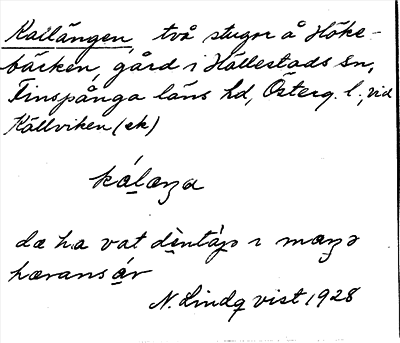 Kallängen, två stugor å Höke-
bäcken, gård i Hällestads sn,
Finspånga läns hd, Österg. l., vid
Källviken (ek)
kálæŋa
dæ ha vat dèntáŋə ı maŋə
hæransár
N. Lindqvist 1928